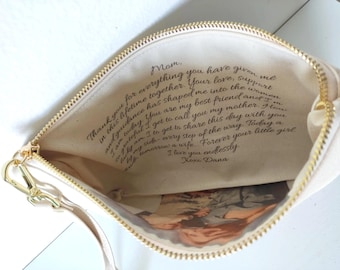 Mom,
Thank you for everything you have given me
in this lifetime together. Your love, support
and guidance has shaped me into the woman
I am. You are my best friend and I
to call you my mother. I
I get to share this day with you
by my side every step of the way. Today a
a wife. Forever your little girl
I love you endlessly
Xoxo, Dana